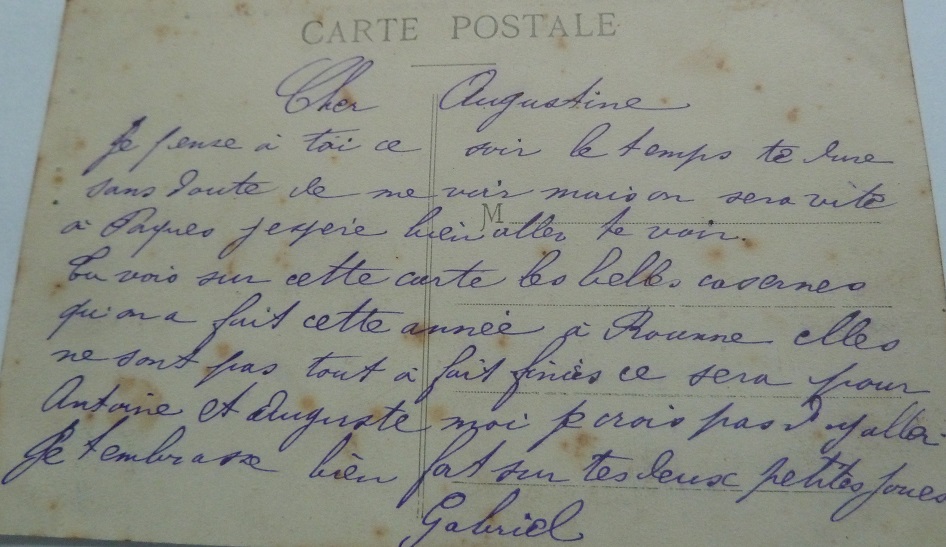 CARTE POSTALE
Cher Augustine
Je pense à toi ce soir le temps te dure
sans doute de me voir mais on sera vite
M
à Paques j'espère bien aller te voir.
Tu vois sur cette carte les belles casernes
qu'on a fait cette année à Roanne elles
ne sont pas tout a fait finies ce sera pour
Antoine et Auguste moi je crois pas d'y aller
Je t'embrasse bien fort sur tes deux petites joues
Gabriel